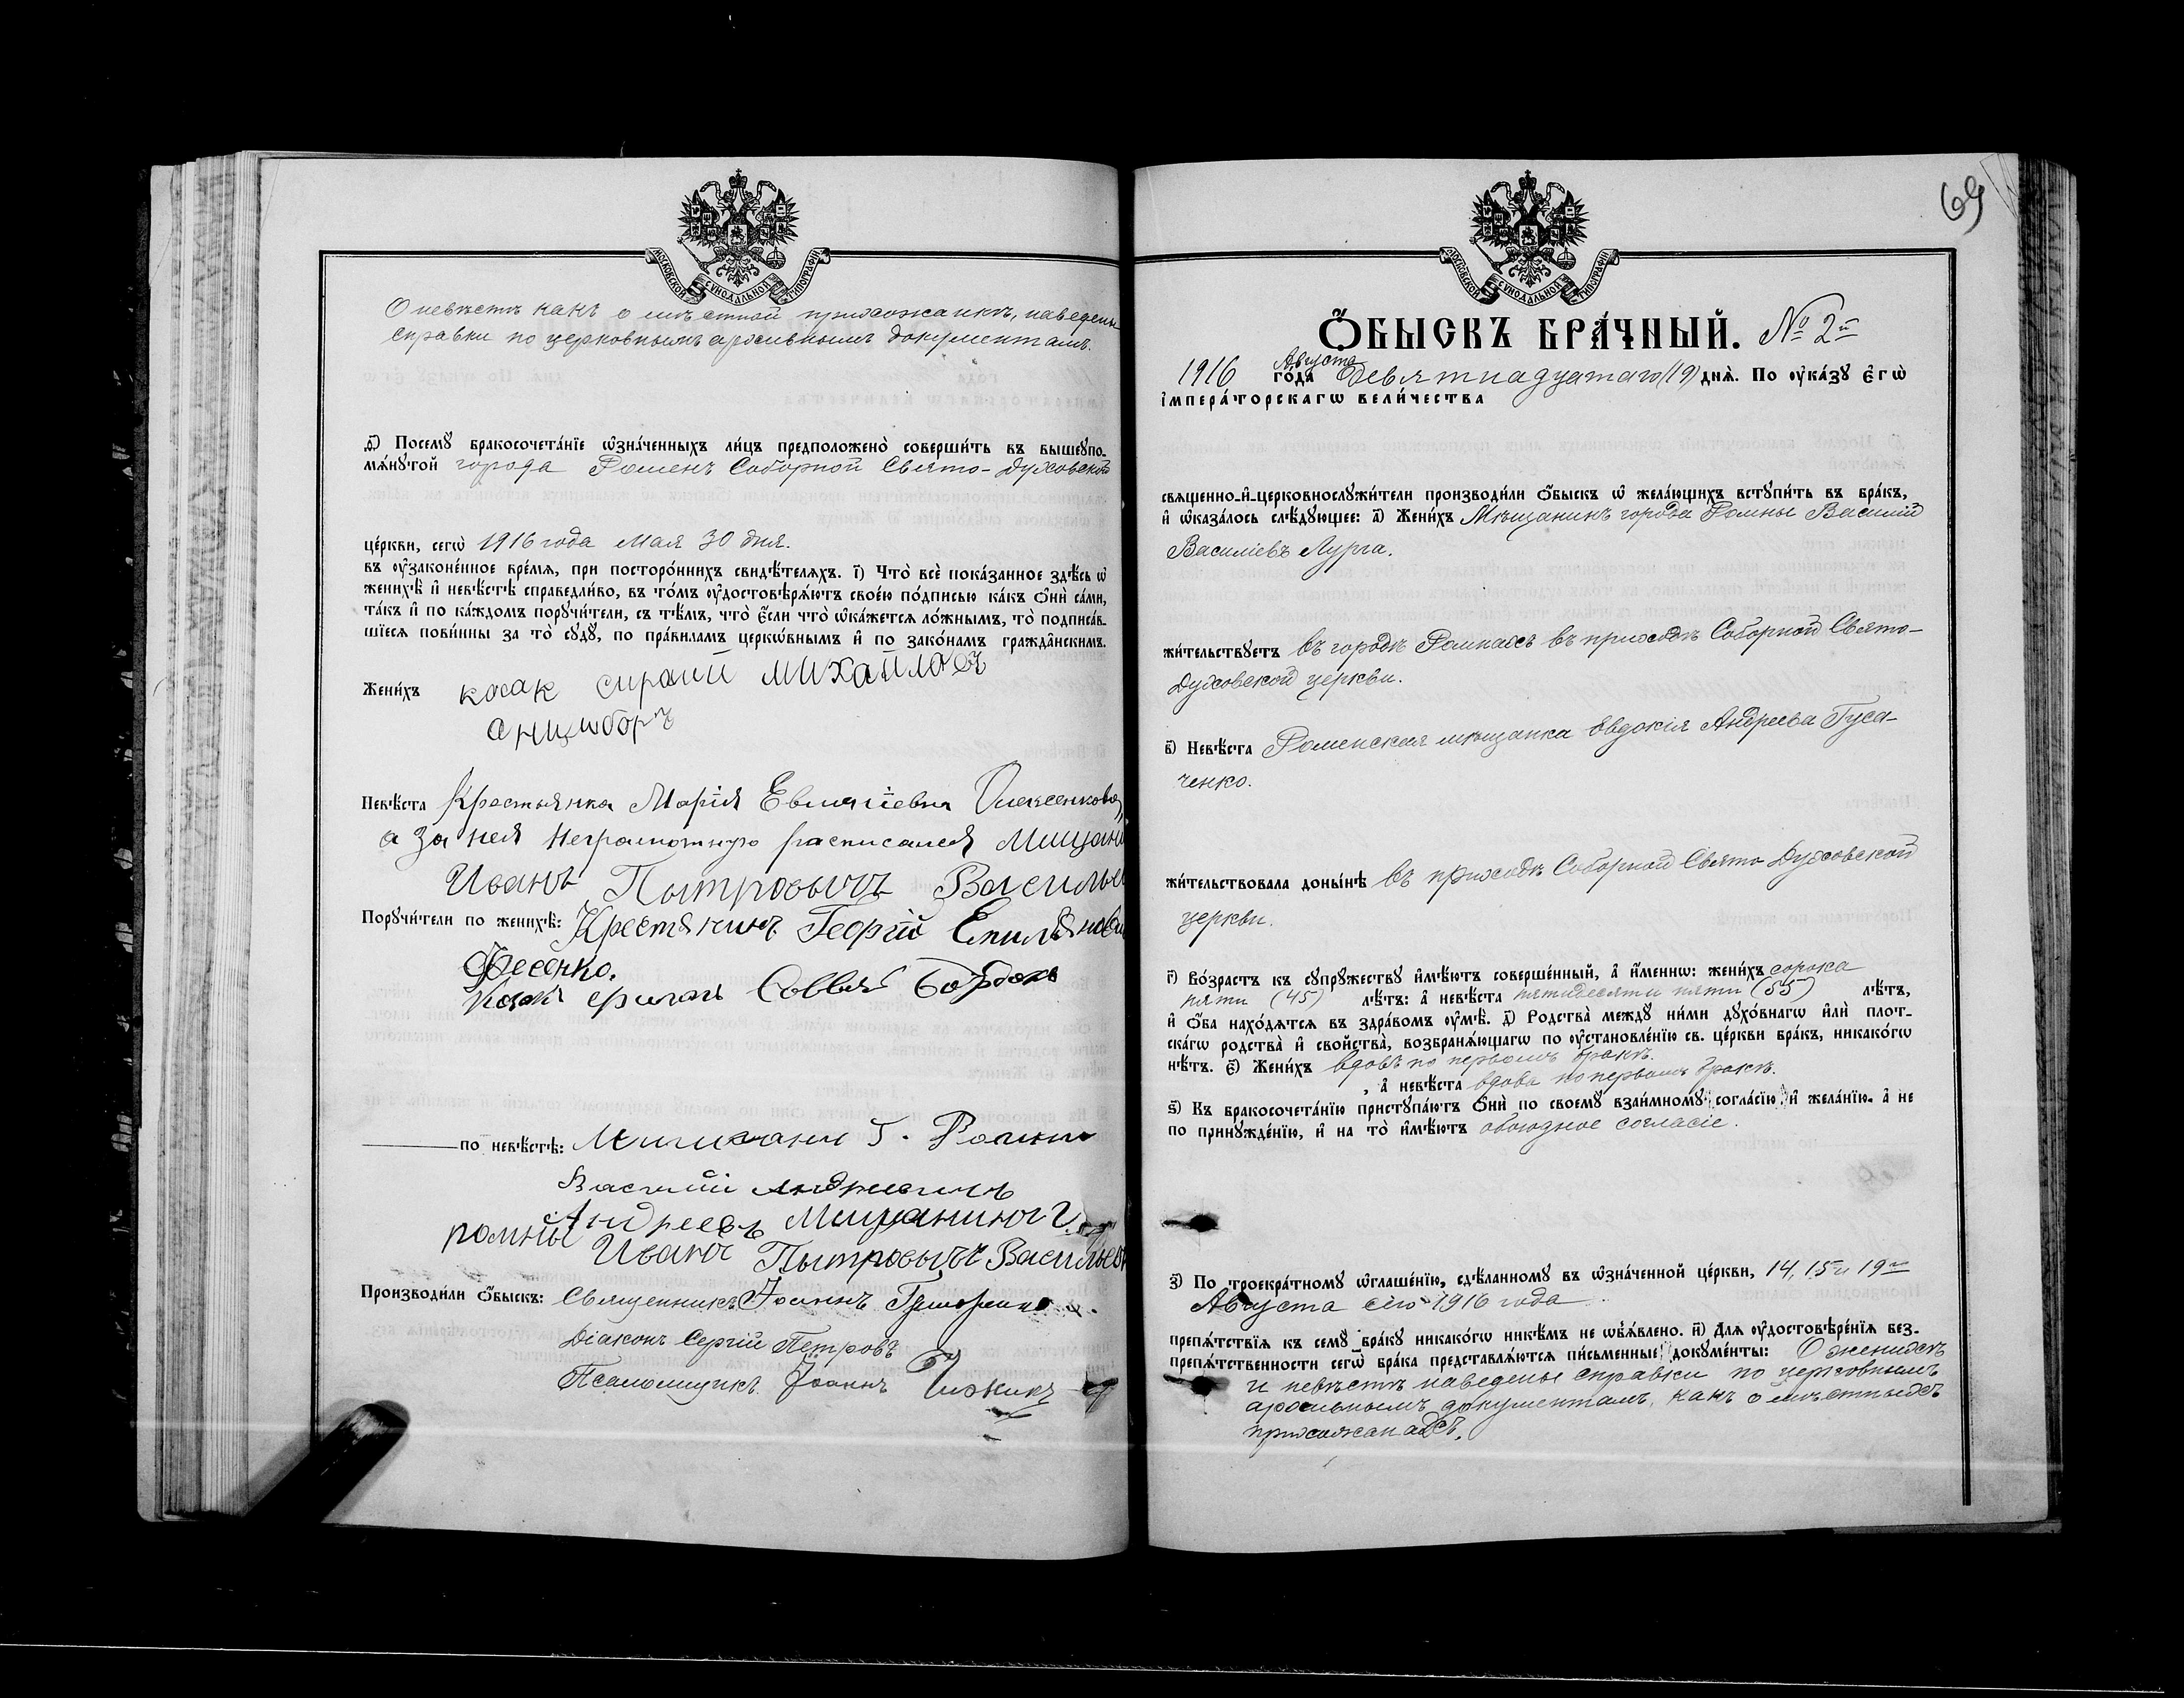 МОСКОВСКОЙ СУНОДАЛЬНОЙ ТИПОГРАФІИ
О невѣстѣ какъ о мѣстной прихожанкѣ, наведены
справки по церковнымъ архивнымъ документамъ.
Посемꙋ бракосочета́нїе ѡ҆зна́ченныхъ ли́цъ предположено̀ соверши́ть въ вышеꙋпо-
мѧ́нꙋтой города Роменъ Соборной Свято-Духовской
це́ркви, сегѡ̀ 1916 года Мая 30 дня.
въ ᲂу҆законе́нное вре́мѧ, при посторо́ннихъ свидѣ́телѧхъ. і҃) Что̀ всѐ пока́занное здѣ́сь ѡ҆
женихѣ̀ и҆ невѣ́стѣ справедли́во, въ то́мъ ᲂу҆достовѣрѧ́ютъ свое́ю по́дписью ка́къ ѻ҆нѝ са́ми,
та́къ и҆ по ка́ждомъ порꙋчи́тели, съ тѣ́мъ, что̀ є҆́сли что̀ ѡ҆ка́жетсѧ ло́жнымъ, то̀ подписа́в-
шїесѧ пови́нны за то̀ сꙋдꙋ̀, по пра́виламъ церко́внымъ и҆ по зако́намъ гражда̂нскимъ.
Жени́хъ козак Михайловъ
Невѣ́ста Крестьянка Марія
а за нея неграмотную расписался Мищани
Иванъ Пытровычъ Василье
Порꙋчи́тели по женихѣ̀: Крестянинъ Георгій Емиляновъ
Фесенко.
Козакъ
по невѣ́стѣ: г. Ромни
Василий
Андреевъ Мищанинъ г.
ромны Иванъ Пытровычъ Василье
Производи́ли ѻ҆́быскъ: Священникъ Іоаннъ
Діаконъ Сергій Петровъ
Псаломщикъ Іоаннъ Чижикъ
69
МОСКОВСКОЙ СУНОДАЛЬНОЙ ТИПОГРАФІИ
Ѻ҆́БЫСКЪ БРА́ЧНЫЙ. № 2й
Августа
1916 го́да Девятнадцатаго (19) днѧ̀. По ᲂу҆ка́зꙋ є҆гѡ̀
і҆мпера́торскагѡ вели́чества
свѧщенно-и҆-церковнослꙋжи́тели производи́ли ѻ҆́быскъ ѡ҆ жела́ющихъ встꙋпи́ть въ бра́къ,
и҆ ѡ҆каза́лось слѣ́дꙋющее: а҃) Жени́хъ Мѣщанинъ города Ромны Василій
Василіевъ Лурга.
жи́тельствꙋетъ въ городѣ Ромнахъ въ приходѣ Соборной Свято-
Духовской церкви.
в҃) Невѣ́ста Роменская мѣщанка Евдокія Андреева Гуса-
ченко.
жи́тельствовала донынѣ въ приходѣ Соборной Свято Духовской
церкви.
г҃) Во́зрастъ къ сꙋпрꙋ́жествꙋ и҆мѣ́ютъ соверше́нный, а҆ и҆́меннѡ: жени́хъ сорока
пяти (45) лѣ́тъ: а҆ невѣ́ста пятидесяти пяти (55) лѣ́тъ,
и҆ ѻ҆́ба нахо́дѧтсѧ въ здра́вомъ ᲂу҆мѣ̀. д҃) Родства̀ междꙋ ни́ми дꙋхо́внагѡ и҆лѝ плот-
ска́гѡ родства̀ и҆ сво́йства, возбранѧ́ющагѡ по ᲂу҆становле́нїю св. це́ркви бра́къ, никако́гѡ
нѣ́тъ. є҃) Жени́хъ вдовъ по первомъ бракѣ.
, а҆ невѣ́ста вдова по первомъ бракѣ.
ѕ҃) Къ бракосочета́нїю пристꙋпа́ютъ ѻ҆нѝ по своемꙋ̀ взаи́мномꙋ согла́сїю и҆ жела́нїю, а҆ не
по принꙋжде́нїю, и҆ на то̀ и҆мѣ́ютъ обоюдное согласіе.
з҃) По троекра́тномꙋ ѡ҆глаше́нїю, сдѣ́ланномꙋ въ ѡ҆зна́ченной це́ркви, 14, 15 и 19го
Августа сего 1916 года
препѧ́тствїѧ къ семꙋ̀ бра́кꙋ никако́гѡ никѣ́мъ не ѡ҆б̾ѧ́влено. и҃) Для ᲂу҆достовѣре́нїѧ без-
препѧ́тственности сегѡ̀ бра́ка представлѧ́ютсѧ пи́сьменные докꙋме́нты: О женихѣ
и невѣстѣ наведены справки по церковнымъ
архивнымъ документамъ, какъ о мѣстныхъ
прихожанахъ.